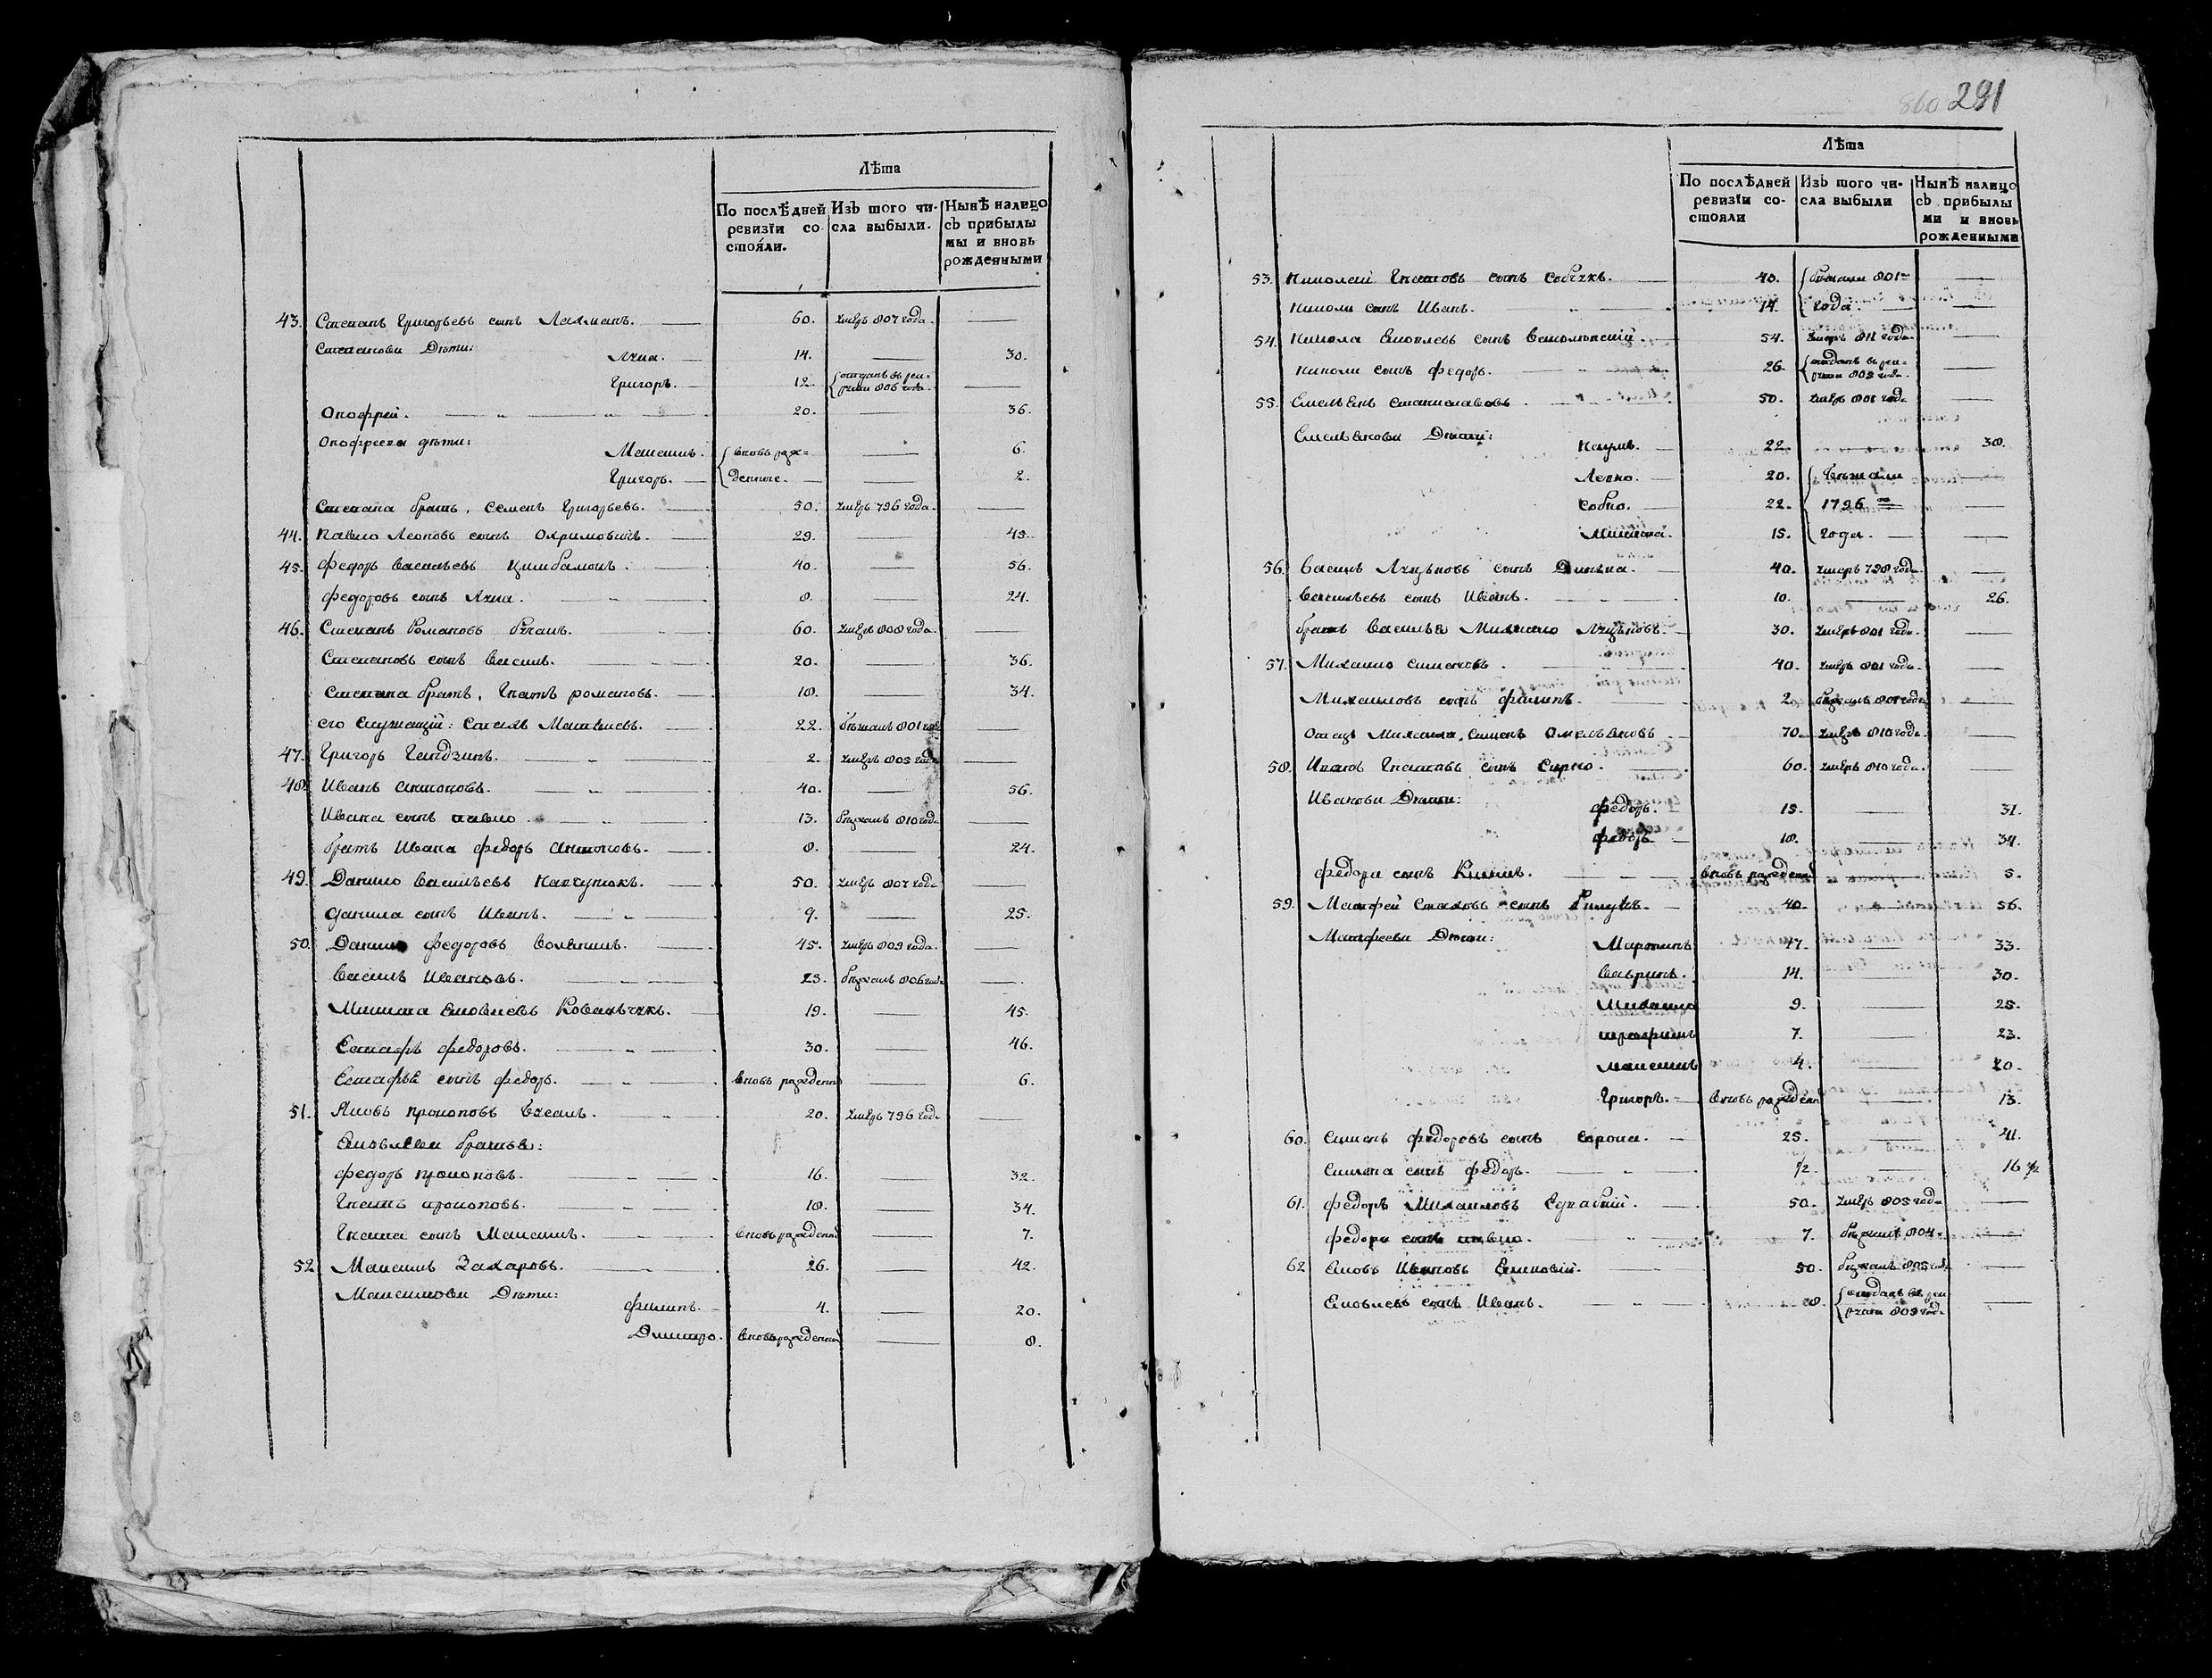 Лѣта
По послѣдней ревизїи состоя́ли.
Изъ того числа выбыли.
Нынѣ налицо съ прибылы мы и вновь рожденными
43. Степанъ Григорьевъ сынъ Лахманъ. 60. умеръ 807 года. —
Степановы Дѣти:
Лука. 14. — 30.
Григоръ. 12. отданъ въ рекруты 806 года. —
Онофрей. 20. — 36.
Онофреевы дѣти:
Максимъ. вновь рож= — 6.
Григоръ. денные. — 2.
Степана братъ, Семенъ Григорьевъ. 50. умеръ 796 года. —
44. Павло Леоновъ сынъ Охримовичъ. 29. — 45.
45. Федоръ Васильевъ Цимбалюкъ. 40. — 56.
Федоровъ сынъ Лука. 8. — 24.
46. Степанъ Романовъ 60. умеръ 808 года. —
Степановъ сынъ Василь. 20. — 36.
Степана братъ, Игнатъ романовъ. 18. — 34.
его служащій: Матвиевъ. 22. бѣжалъ 801 года —
47. Григоръ 2. умеръ 805 года —
48. Иванъ Антоновъ. 40. — 56.
Ивана сынъ павло. 13. бѣжалъ 810 года —
братъ Ивана Федоръ Антоновъ. 8. — 24.
49. Данило Васильевъ 50. умеръ 807 года —
данила сынъ Иванъ. 9. — 25.
50. Данило Федоровъ 45. умеръ 809 года. —
Василь Ивановъ. 23. бѣжалъ 806 года —
Микита Яковлевъ Ковальчукъ. 19. — 45.
Естафъ Федоровъ. 30. — 46.
Естафья сынъ Федоръ. вновь рожденный — 6.
51. Яковъ прокоповъ 20. умеръ 796 года —
Яковлевы братья:
Федоръ прокоповъ. 16. — 32.
Игнатъ прокоповъ. 18. — 34.
Игната сынъ Максимъ. вновь рожденный — 7.
52. Максимъ Захаровъ. 26. — 42.
Максимовы Дѣти:
Филипъ. 4. — 20.
Дмитро. вновь рожденный — 8.
291
860
Лѣта
По послѣдней ревизїи состояли
Изъ того числа выбыли
Нынѣ налицо съ прибылы ми и вновь рожденными
53. Николай Игнатовъ сынъ 40. бѣжали 801го —
Николы сынъ Иванъ. 14. года. —
54. Никола Яковлевъ сынъ 54. умеръ 811 года —
Николы сынъ Федоръ. 26. отданъ въ рекруты 803 года. —
55. Емельянъ Станиславовъ. 50. умеръ 801 года —
Емельяновы Дѣти:
Наумъ. 22. — 38.
Левко. 20. бѣжали —
Собко. 22. 1796го —
Микита. 15. года. —
56. Василь Луцьковъ сынъ 40. умеръ 798 года. —
Васильевъ сынъ Иванъ. 10. — 26.
братъ Василья Михайло Луцьковъ. 30. умеръ 801 года. —
57. Михайло Симоновъ. 40. умеръ 801 года. —
Михайловъ сынъ Филипъ. 2. бѣжалъ 807 года —
Отецъ Михайла, Симонъ Омельяновъ 70. умеръ 810 года. —
58. Иванъ Игнатовъ сынъ Сирко. 60. умеръ 810 года. —
Ивановы Дѣти:
Федоръ. 15. — 31.
Федоръ 18. — 34.
Федора сынъ вновь рожденный — 5.
59. Матфей Стаховъ сынъ 40. — 56.
Матфеевы Дѣти:
Мартинъ 17. — 33.
Лавринъ. 14. — 30.
Михайло 9. — 25.
трофимъ 7. — 23.
максимъ 4. — 20.
Григоръ. вновь рожденный — 13.
60. Симонъ Федоровъ сынъ 25. — 41.
Симона сынъ Федоръ. 1/2. — 16 1/2
61. Федоръ Михайловъ 50. умеръ 805 года —
Федора сынъ павло. 7. бѣжалъ 804. —
62. Яковъ Ивановъ 50. бѣжалъ 805 года —
Яковлевъ сынъ Иванъ. 8. отданъ въ рекруты 809 года —